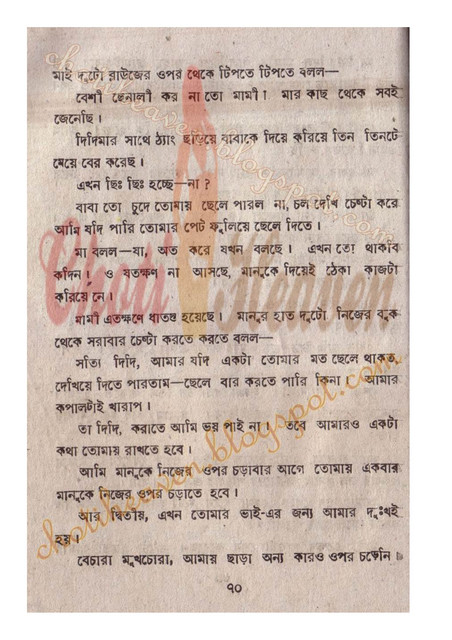 মাই দুটো ব্লাউজের ওপর থেকে টিপতে টিপতে বলল—
বেশী ছেনালী কর না তো মামী। মার কাছ থেকে সবই
জেনেছি।
দিদিমার সাথে ঠ্যাং ছড়িয়ে বাবাকে দিয়ে করিয়ে তিন তিনটে
মেয়ে বের করেছ।
এখন ছিঃ ছিঃ হচ্ছে—না ?
বাবা তো চুদে তোমায় ছেলে পারল না, চল দেখি চেষ্টা করে
আমি যদি পারি তোমার পেট ফুলিয়ে ছেলে দিতে।
মা বলল—যা, অত করে যখন বলছে। এখন তো থাকবি
কদিন। ও যতক্ষণ না আসছে, মানুকে দিয়েই ঠেকা কাজটা
করিয়ে নে।
মামী এতক্ষণে ধাতস্থ হয়েছে। মানুর হাত দুটো নিজের বুক
থেকে সরাবার চেষ্টা করতে করতে বলল—
সত্যি দিদি, আমার যদি একটা তোমার মত ছেলে থাকত,
দেখিয়ে দিতে পারতাম—ছেলে বার করতে পারি কিনা। আমার
কপালটাই খারাপ।
তা দিদি, করাতে আমি ভয় পাই না। তবে আমারও একটা
কথা তোমায় রাখতে হবে।
আমি মানুকে নিজের ওপর চড়াবার আগে তোমায় একবার
মানুকে নিজের ওপর চড়াতে হবে।
আর দ্বিতীয়, এখন তোমার ভাই-এর জন্য আমার দুঃখই
হয়।
বেচারা মুখচোরা, আমায় ছাড়া অন্য কারও ওপর চড়েনি।
৭০
Choti Heaven
chotiheaven.blogspot.com